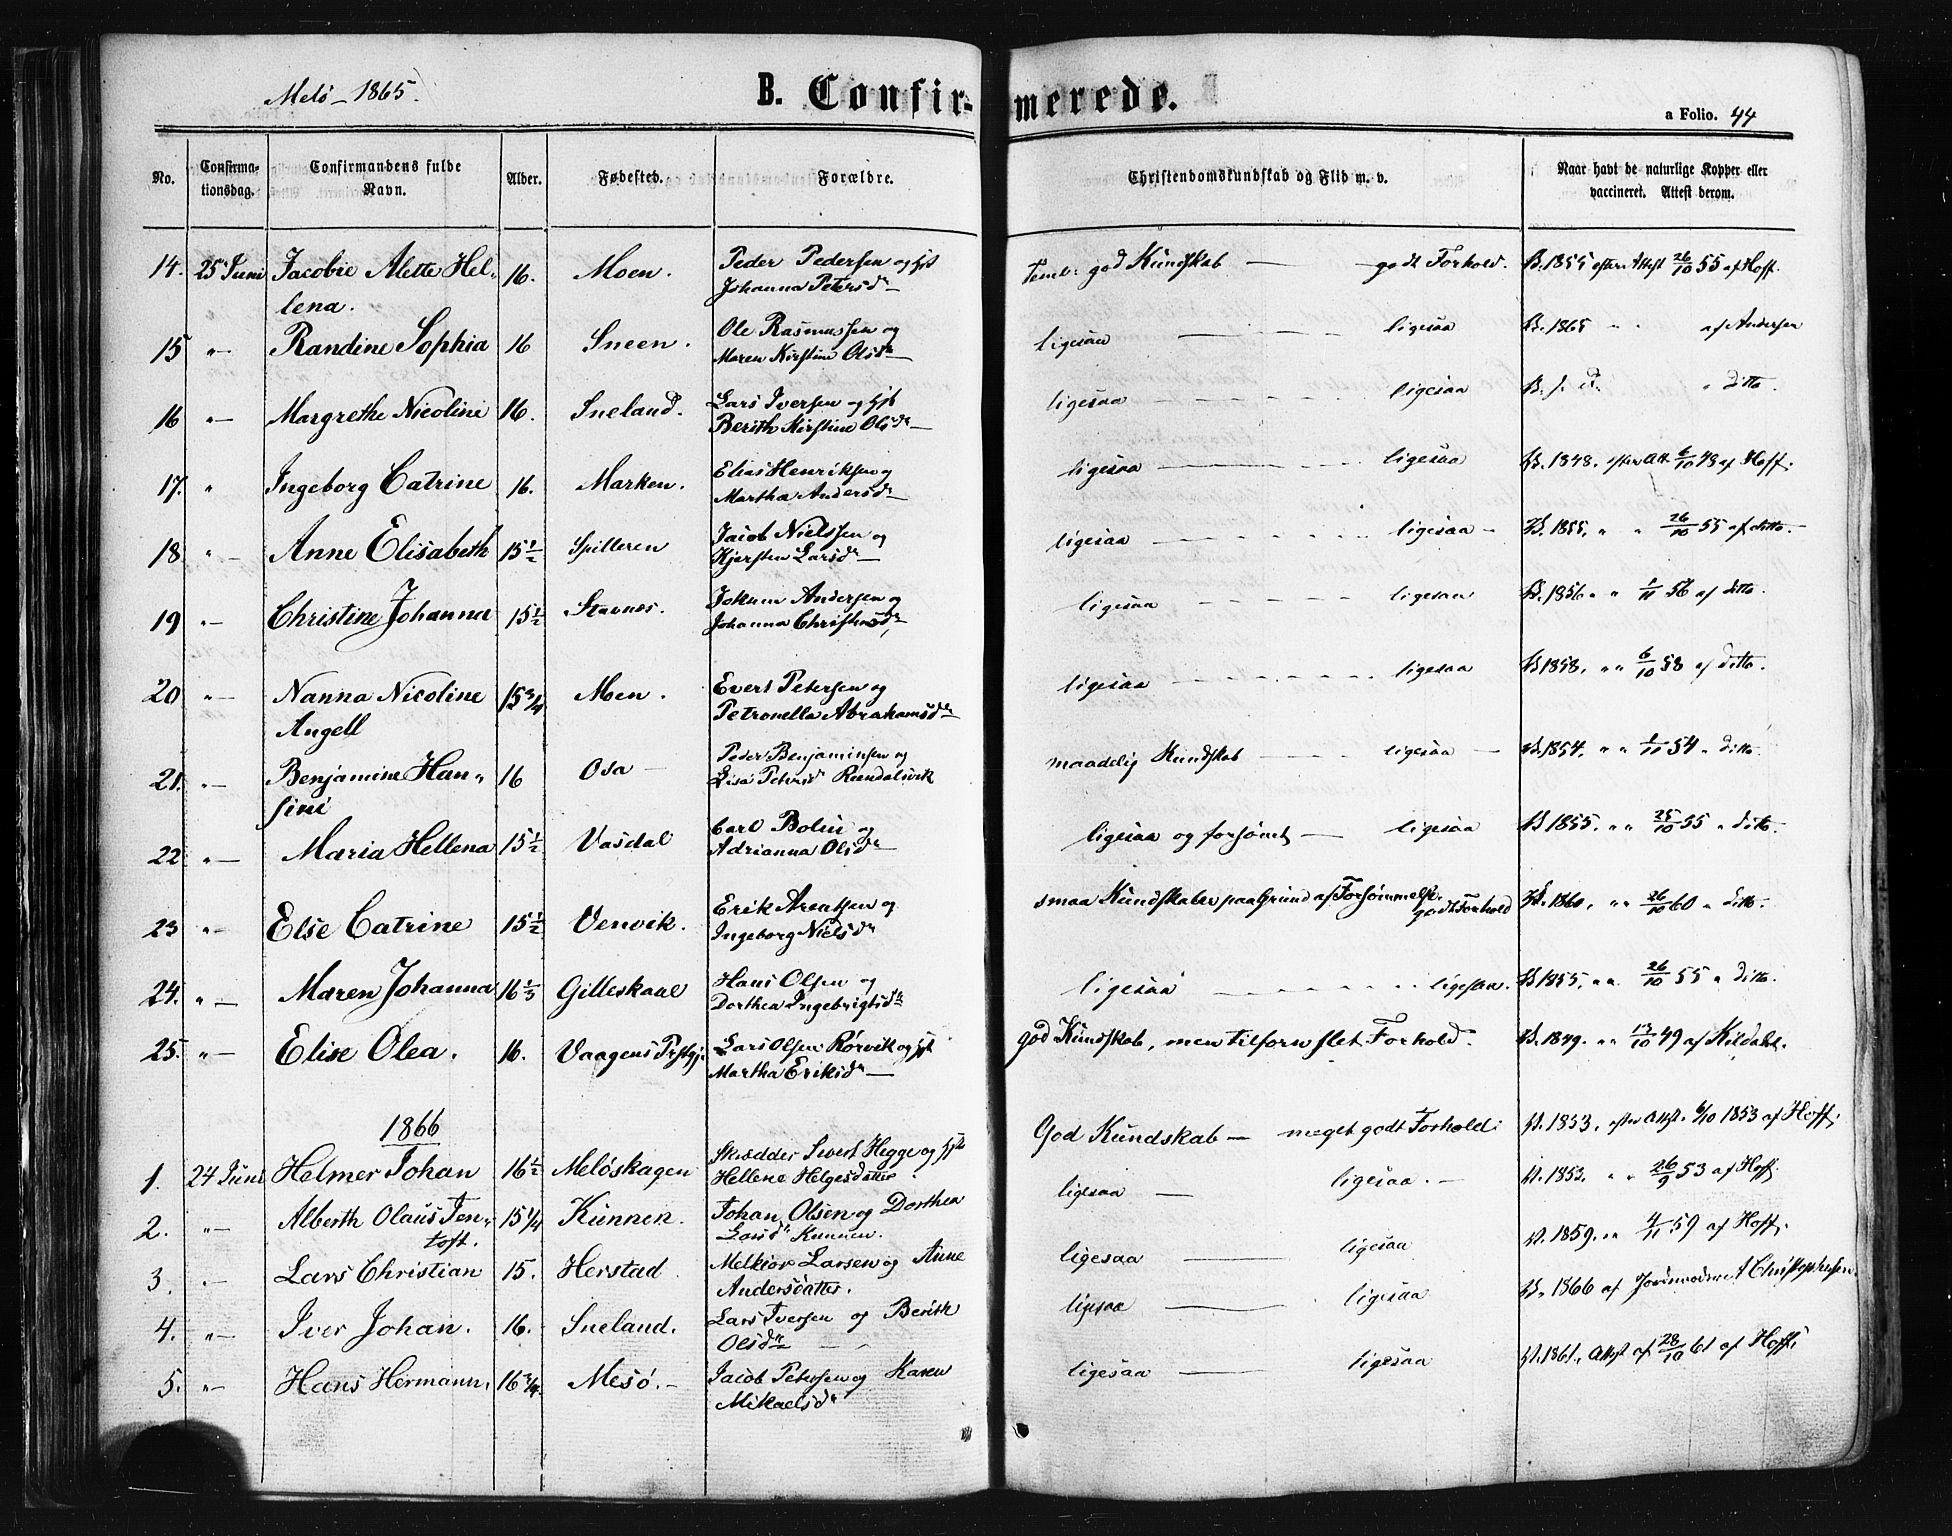 Melö - 1865.
B. Confirmerede.
a Folio. 44
No. Confirma-tionsdag. Confirmandens fulde Navn. Alder. Fødested. Forældre. Christendomskundskab og Flid m. v. Naar havt de naturlige Kopper eller vaccineret. Attest derom.
14. 25 Juni Jacobie Alette Hel- 16. Moen. Peder Pedersen og Johanna Petersd god Kundskab — godt Forhold. B. 1855 efter Attest 26/10 55 af Hoff.
lena.
15 " Randine Sophia 16 Sneen. Ole Rasmussen og Maren Kirstine Olsdr ligesaa ligesaa B. 1865 " af Andersen
16 " Margrethe Nicoline 16. Sneland. Lars Iversen og Berith Kirstine Olsdr ligesaa ligesaa " ditto.
17. " Ingeborg Catrine 16. Marken. Elias Henriksen og Martha Andersdr ligesaa ligesaa B. 1848. efter Att 6/10 48 af Hoff.
18 " Anne Elisabeth 15 1/2 Spilleren Jacob Nielssen og Kjersten Larsdr ligesaa ligesaa B. 1855. " " 26/10 55 af ditto.
19 " Christine Johanna 15 1/2 Stavnes. Jokum Andersen og Johanna Christensdr ligesaa ligesaa B. 1856 " " 1/11 56 af ditto.
20 " Nanna Nicoline 15 3/4 Moen. Evert Petersen og Petronella Abrahamsdr ligesaa ligesaa B 1858. " " 6/10 58 af ditto.
Angell
21. " Benjamine Han- 16 Osa — Peder Benjaminsen og Lisa Petersd maadelig Kundskab — ligesaa B. 1854. " " 1/11 54 " ditto
sine
22 " Maria Hellena 15 1/2 Vasdal Carl Bolin og Adrianna Olsdr ligesaa og forsömt — ligesaa B 1855. " " 25/10 55 " ditto.
23 " Else Catrine 15 1/2 Venvik. Erik Arentsen og Ingeborg Nielsdr smaa Kundskaber paa Grund af Forsömmelse. godt Forhold B. 1860. " " 26/10 60 " ditto.
24. " Maren Johanna 16 1/3 Gilleskaal Hans Olsen og Dorthea Ingebrigtsdr ligesaa ligesaa. B 1855. " " 26/10 55 " ditto.
25. " Elise Olea. 16. Vaagens Prstgj. Lars Olsen Rørvik og Martha Eriksdr god Kundskab, men tilforn slet Forhold. B. 1849. " " 13/10 49 af Kildahl.
1866
1. 24 Juni Helmer Johan 16 1/2 Meløskagen Skrædder Sivert Hegge og Hellene Helgesdatter God Kundskab — meget godt Forhold. V. 1853. efter Attest. 6/10 1853 af Hoff.
2. " Alberth Olaus Jen- 15 1/4 Kunnen. Johan Olsen og Dorthea Larsdr Kunnen. ligesaa — ligesaa. V. 1853. " " 26/9 53 af Hoff.
toft.
3. " Lars Christian 15. Herstad Melkior Larsen og Anne Andersdatter. ligesaa — ligesaa V. 1859. " 4/11 59 af Hoff.
4. " Iver Johan. 16. Sneland. Lars Iversen og Berith Olsdr ligesaa — ligesaa B. 1866 af Jordmoder Christophersen.
5. " Hans Hermann. 16 3/4. Mesø. - Jacob Petersen og Karen Mikaelsdr ligesaa — ligesaa V. 1861. Attest af 28/10 61 af Hoff.